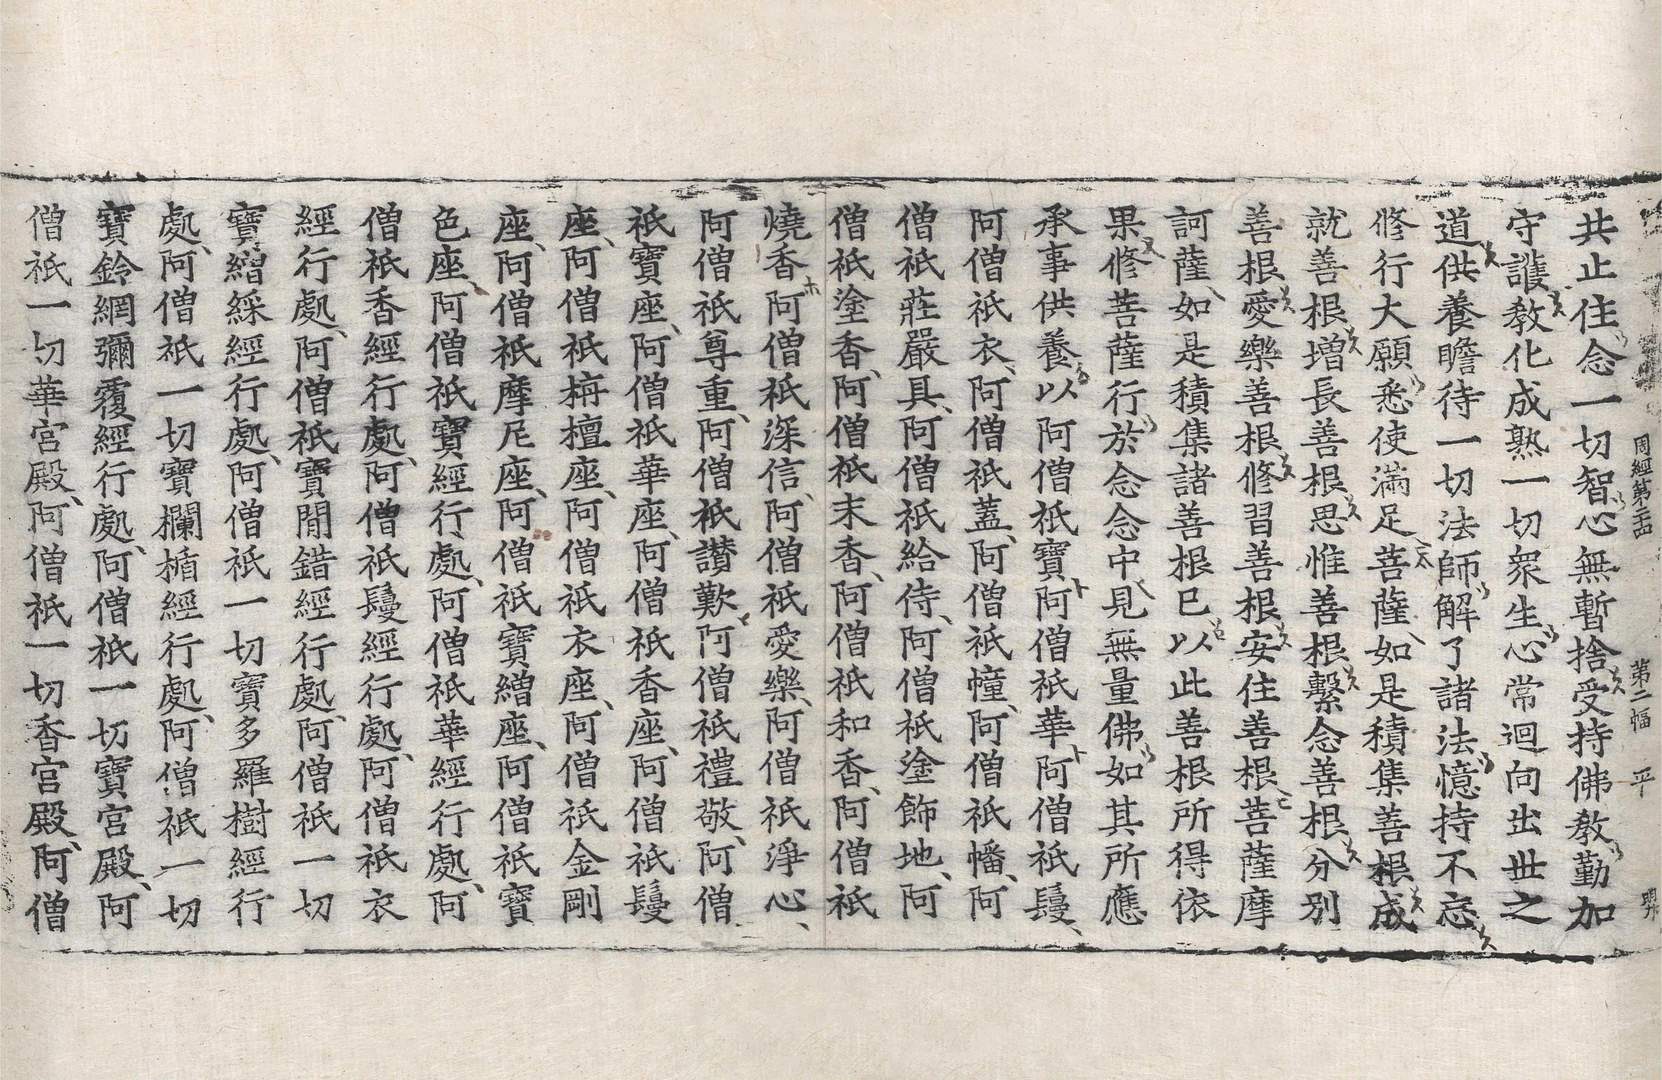 周經第二十四 第二幅 平
共止住念一切智心無暫捨受持佛教勤加
守護教化成熟一切衆生心常迴向出世之
道供養瞻待一切法師解了諸法憶持不忘
修行大願悉使滿足菩薩如是積集善根成
就善根增長善根思惟善根繫念善根分別
善根愛樂善根修習善根安住善根菩薩摩
訶薩如是積集諸善根已以此善根所得依
果修菩薩行於念念中見無量佛如其所應
承事供養以阿僧祇寶阿僧祇華阿僧祇鬘
阿僧祇衣阿僧祇蓋阿僧祇幢阿僧祇幡阿
僧祇莊嚴具阿僧祇給侍阿僧祇塗飾地阿
僧祇塗香阿僧祇末香阿僧祇和香阿僧祇
燒香阿僧祇深信阿僧祇愛樂阿僧祇淨心
阿僧祇尊重阿僧祇讚歎阿僧祇禮敬阿僧
祇寶座阿僧祇華座阿僧祇香座阿僧祇鬘
座阿僧祇栴檀座阿僧祇衣座阿僧祇金剛
座阿僧祇摩尼座阿僧祇寶繒座阿僧祇寶
色座阿僧祇寶經行處阿僧祇華經行處阿
僧祇香經行處阿僧祇鬘經行處阿僧祇衣
經行處阿僧祇寶閒錯經行處阿僧祇一切
寶繒綵經行處阿僧祇一切寶多羅樹經行
處阿僧祇一切寶欄楯經行處阿僧祇一切
寶鈴網彌覆經行處阿僧祇一切寶宮殿阿
僧祇一切華宮殿阿僧祇一切香宮殿阿僧